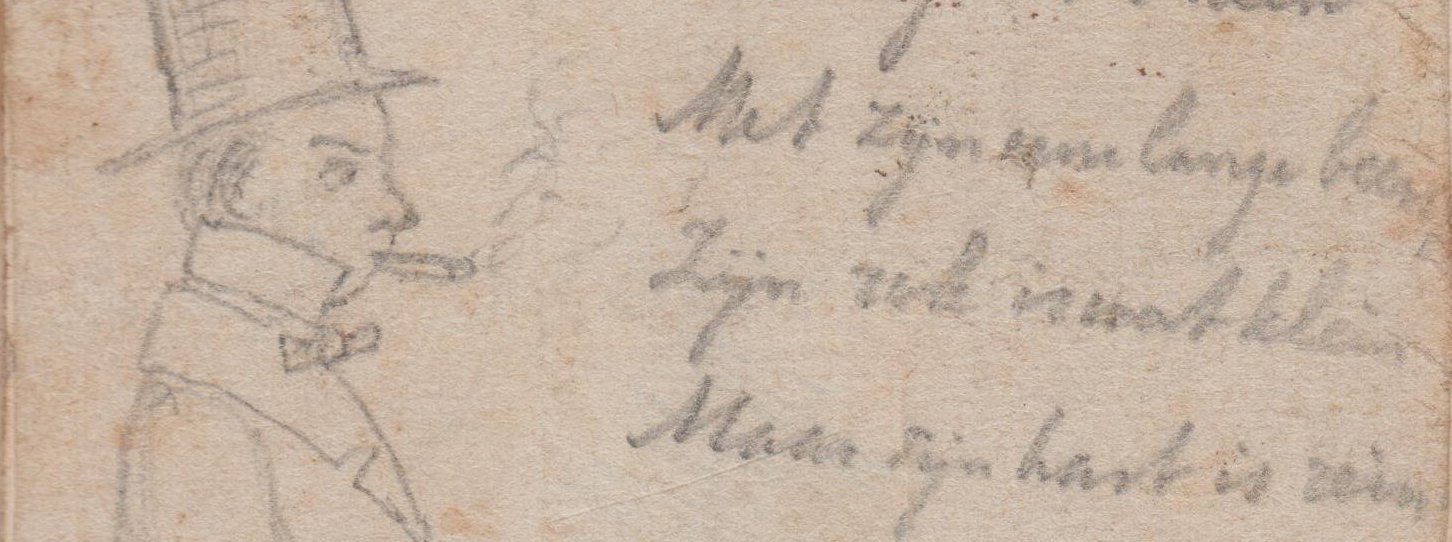 Met zijn eene lange been,
Zijn rok is wat klein
Maar zijn hart is rein